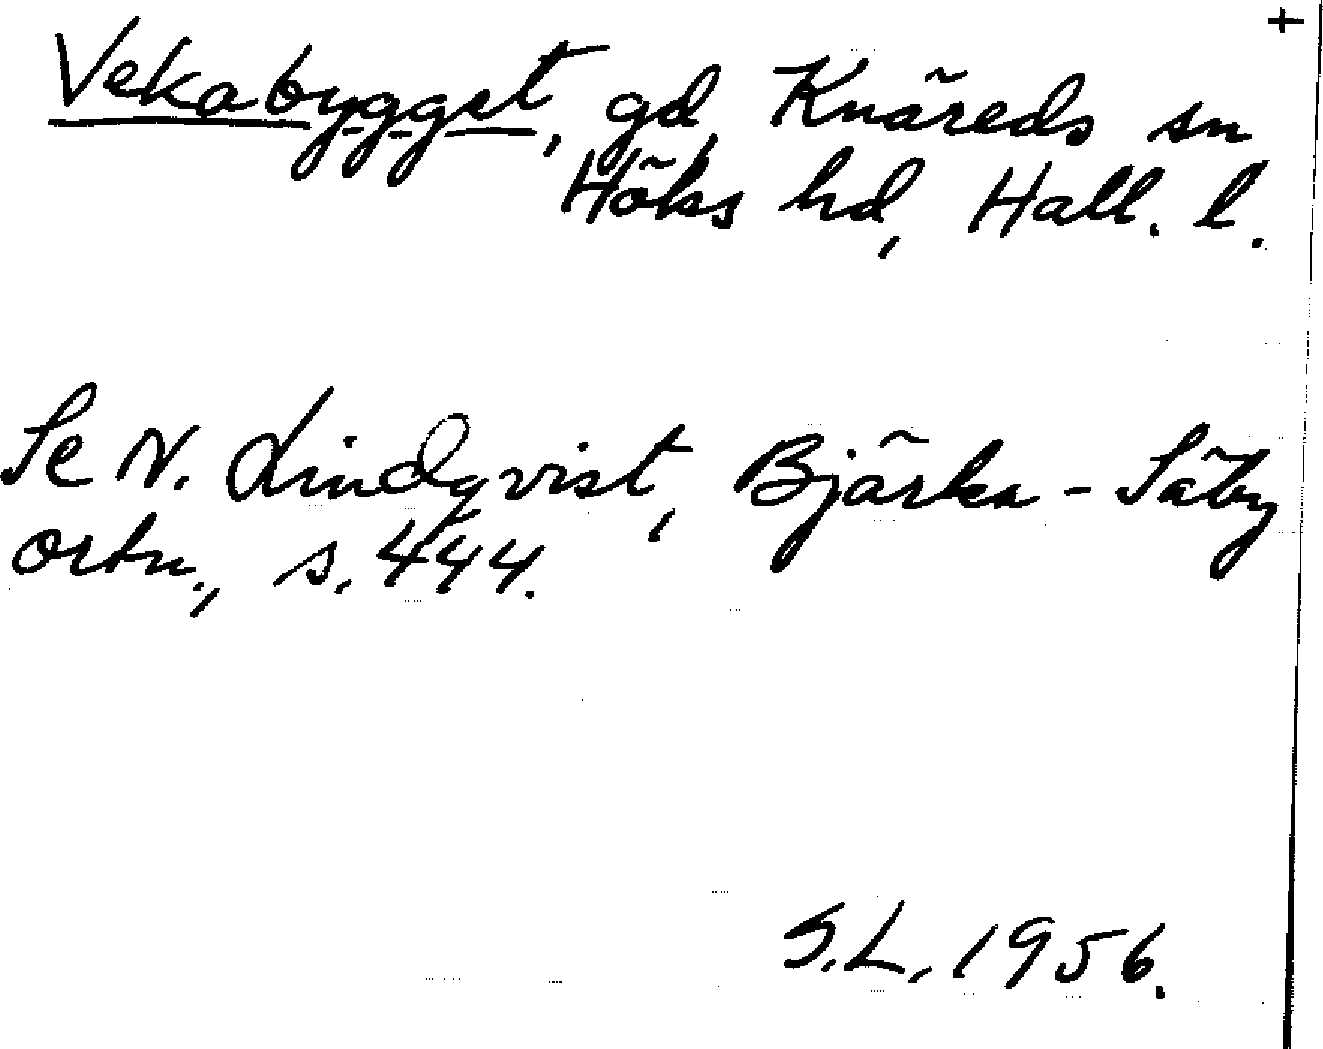 +
Vekabygget, gd, Knäreds sn
Höks hd, Hall. l.
Se N. Lindqvist, Bjärka-Säby
ortn., s. 444.
S.L. 1956.